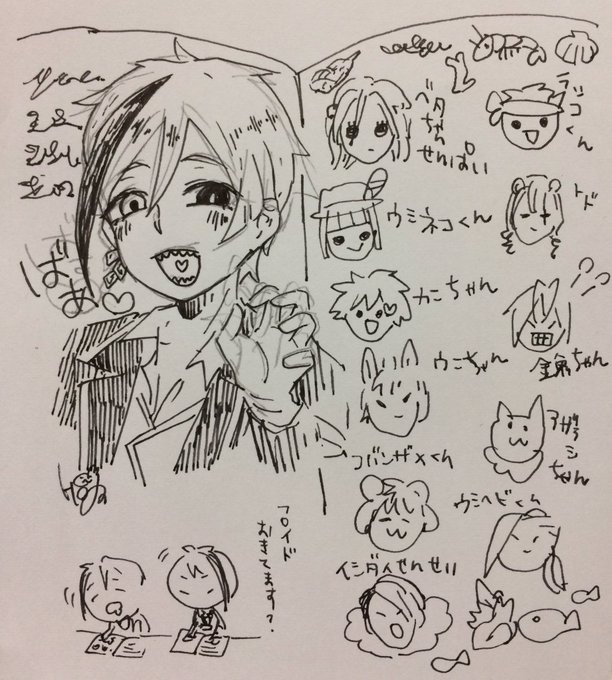 ばあ♡
ベタ
ちゃん
せんぱい
ラッコくん
ウミネコくん
トド
カニちゃん
金魚ちゃん
ウニちゃん
アザラシ
ちゃん
コバンザメくん
ウミヘビくん
イシダイせんせい
フロイド
おきてます?